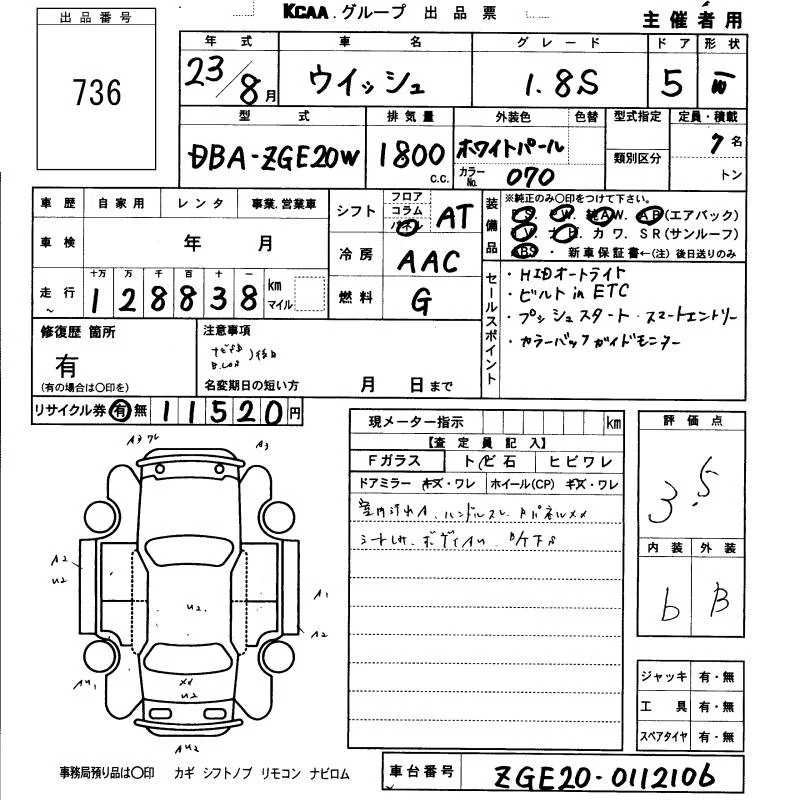 出品番号
736
KCAA グループ 出品票
主催者用
年式 車名 グレード ドア 形状
23/8月 ウィッシュ 1.8S 5
型式 排気量 外装色 色替 型式指定 定員・積載
DBA-ZGE20W 1800c.c. ホワイトパール 7名
類別区分 トン
カラーNo. 070
車歴 自家用 レンタ 事業.営業車
シフト フロア コラム パネル AT
車検 年 月
冷房 AAC
走行 十万 万 千 百 十 一
128838 km マイル
燃料 G
装備品
※純正のみ〇印をつけて下さい。
P.S. P.W. 純A.W. AB(エアバック)
T.V. ナビ カワ. SR(サンルーフ)
ABS ・ 新車保証書←(注)後日送りのみ
セールスポイント
・HIDオートライト
・ビルトin ETC
・プッシュスタート・スマートエントリー
・カラーバックガイドモニター
修復歴 箇所
有
(有の場合は〇印を)
注意事項
名変期日の短い方 月 日まで
リサイクル券 有 無 11520円
現メーター指示 km
【査定員記入】
Fガラス トビ石 ヒビワレ
ドアミラー キズ・ワレ ホイール(CP) キズ・ワレ
評価点
3.5
内装 外装
b B
A3 A3
A2
U2
A1
U2
A2
AU1
XX
U2
AU2
ジャッキ 有・無
工具 有・無
スペアタイヤ 有・無
事務局預り品は〇印 カギ シフトノブ リモコン ナビロム
車台番号 ZGE20-0112106